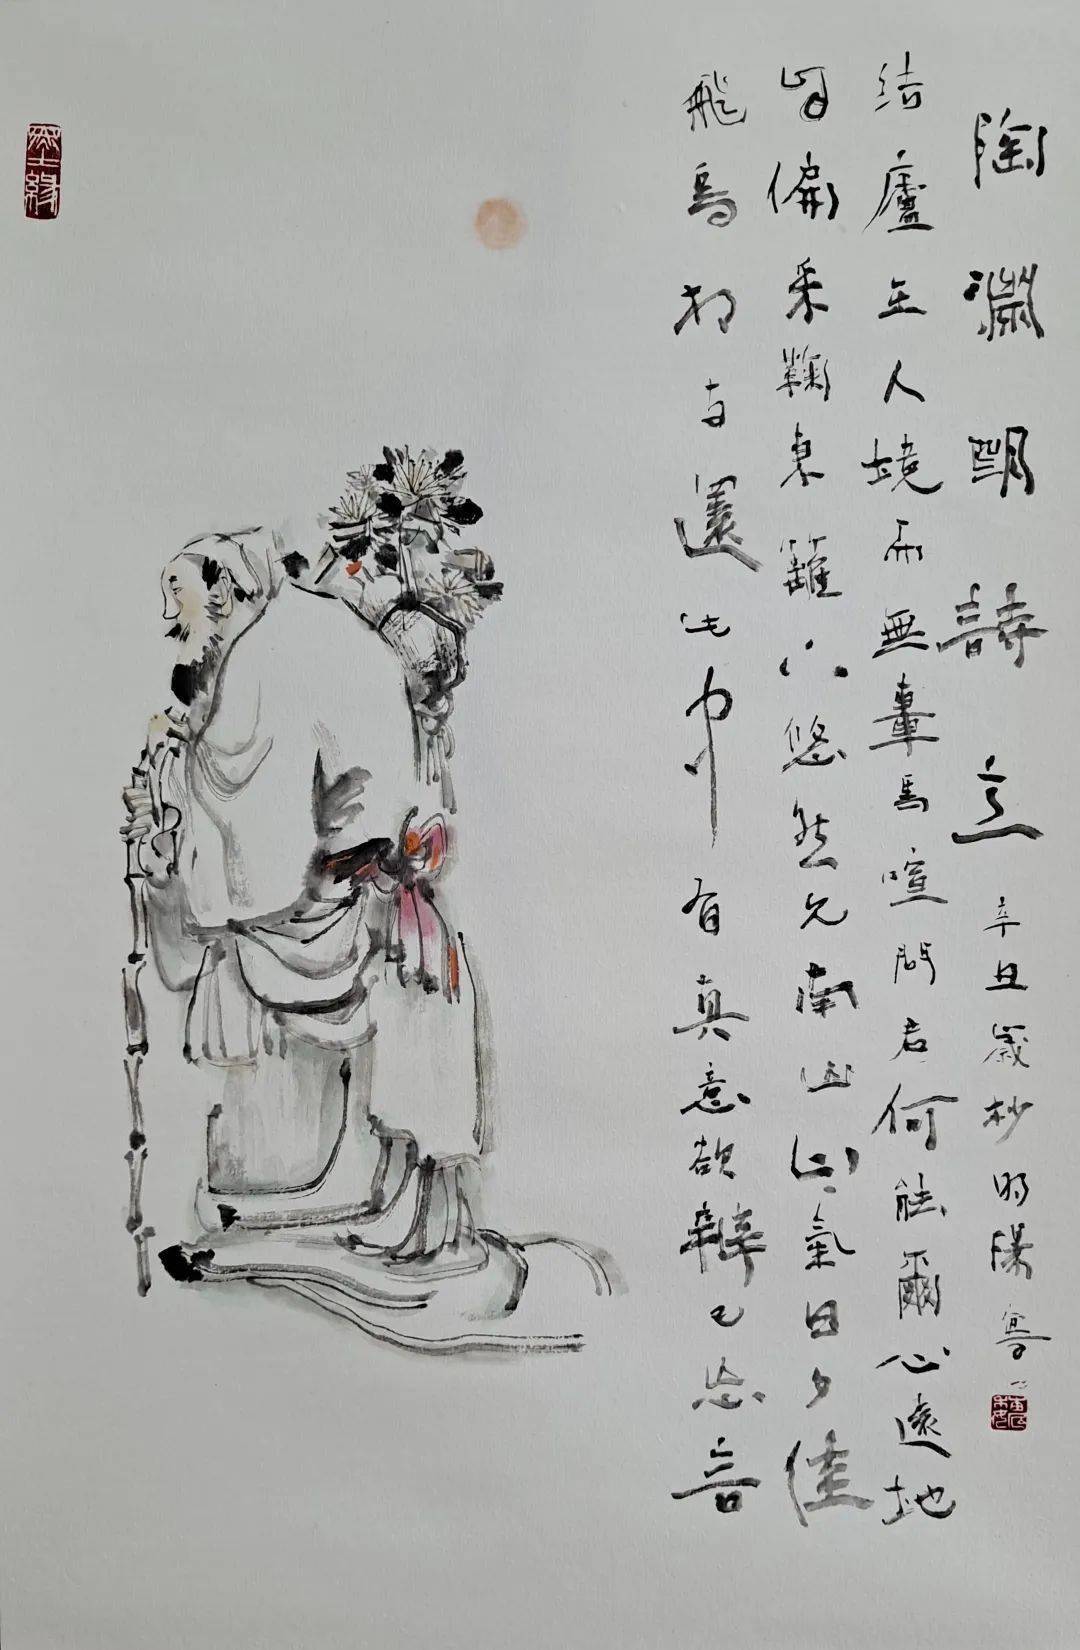 陶淵明詩意 辛丑歲杪
結廬在人境而無車馬喧問君何能爾心遠地
自偏采鞠東籬下悠然見南山山氣日夕佳
飛鳥相與還此中有真意欲辨已忘言